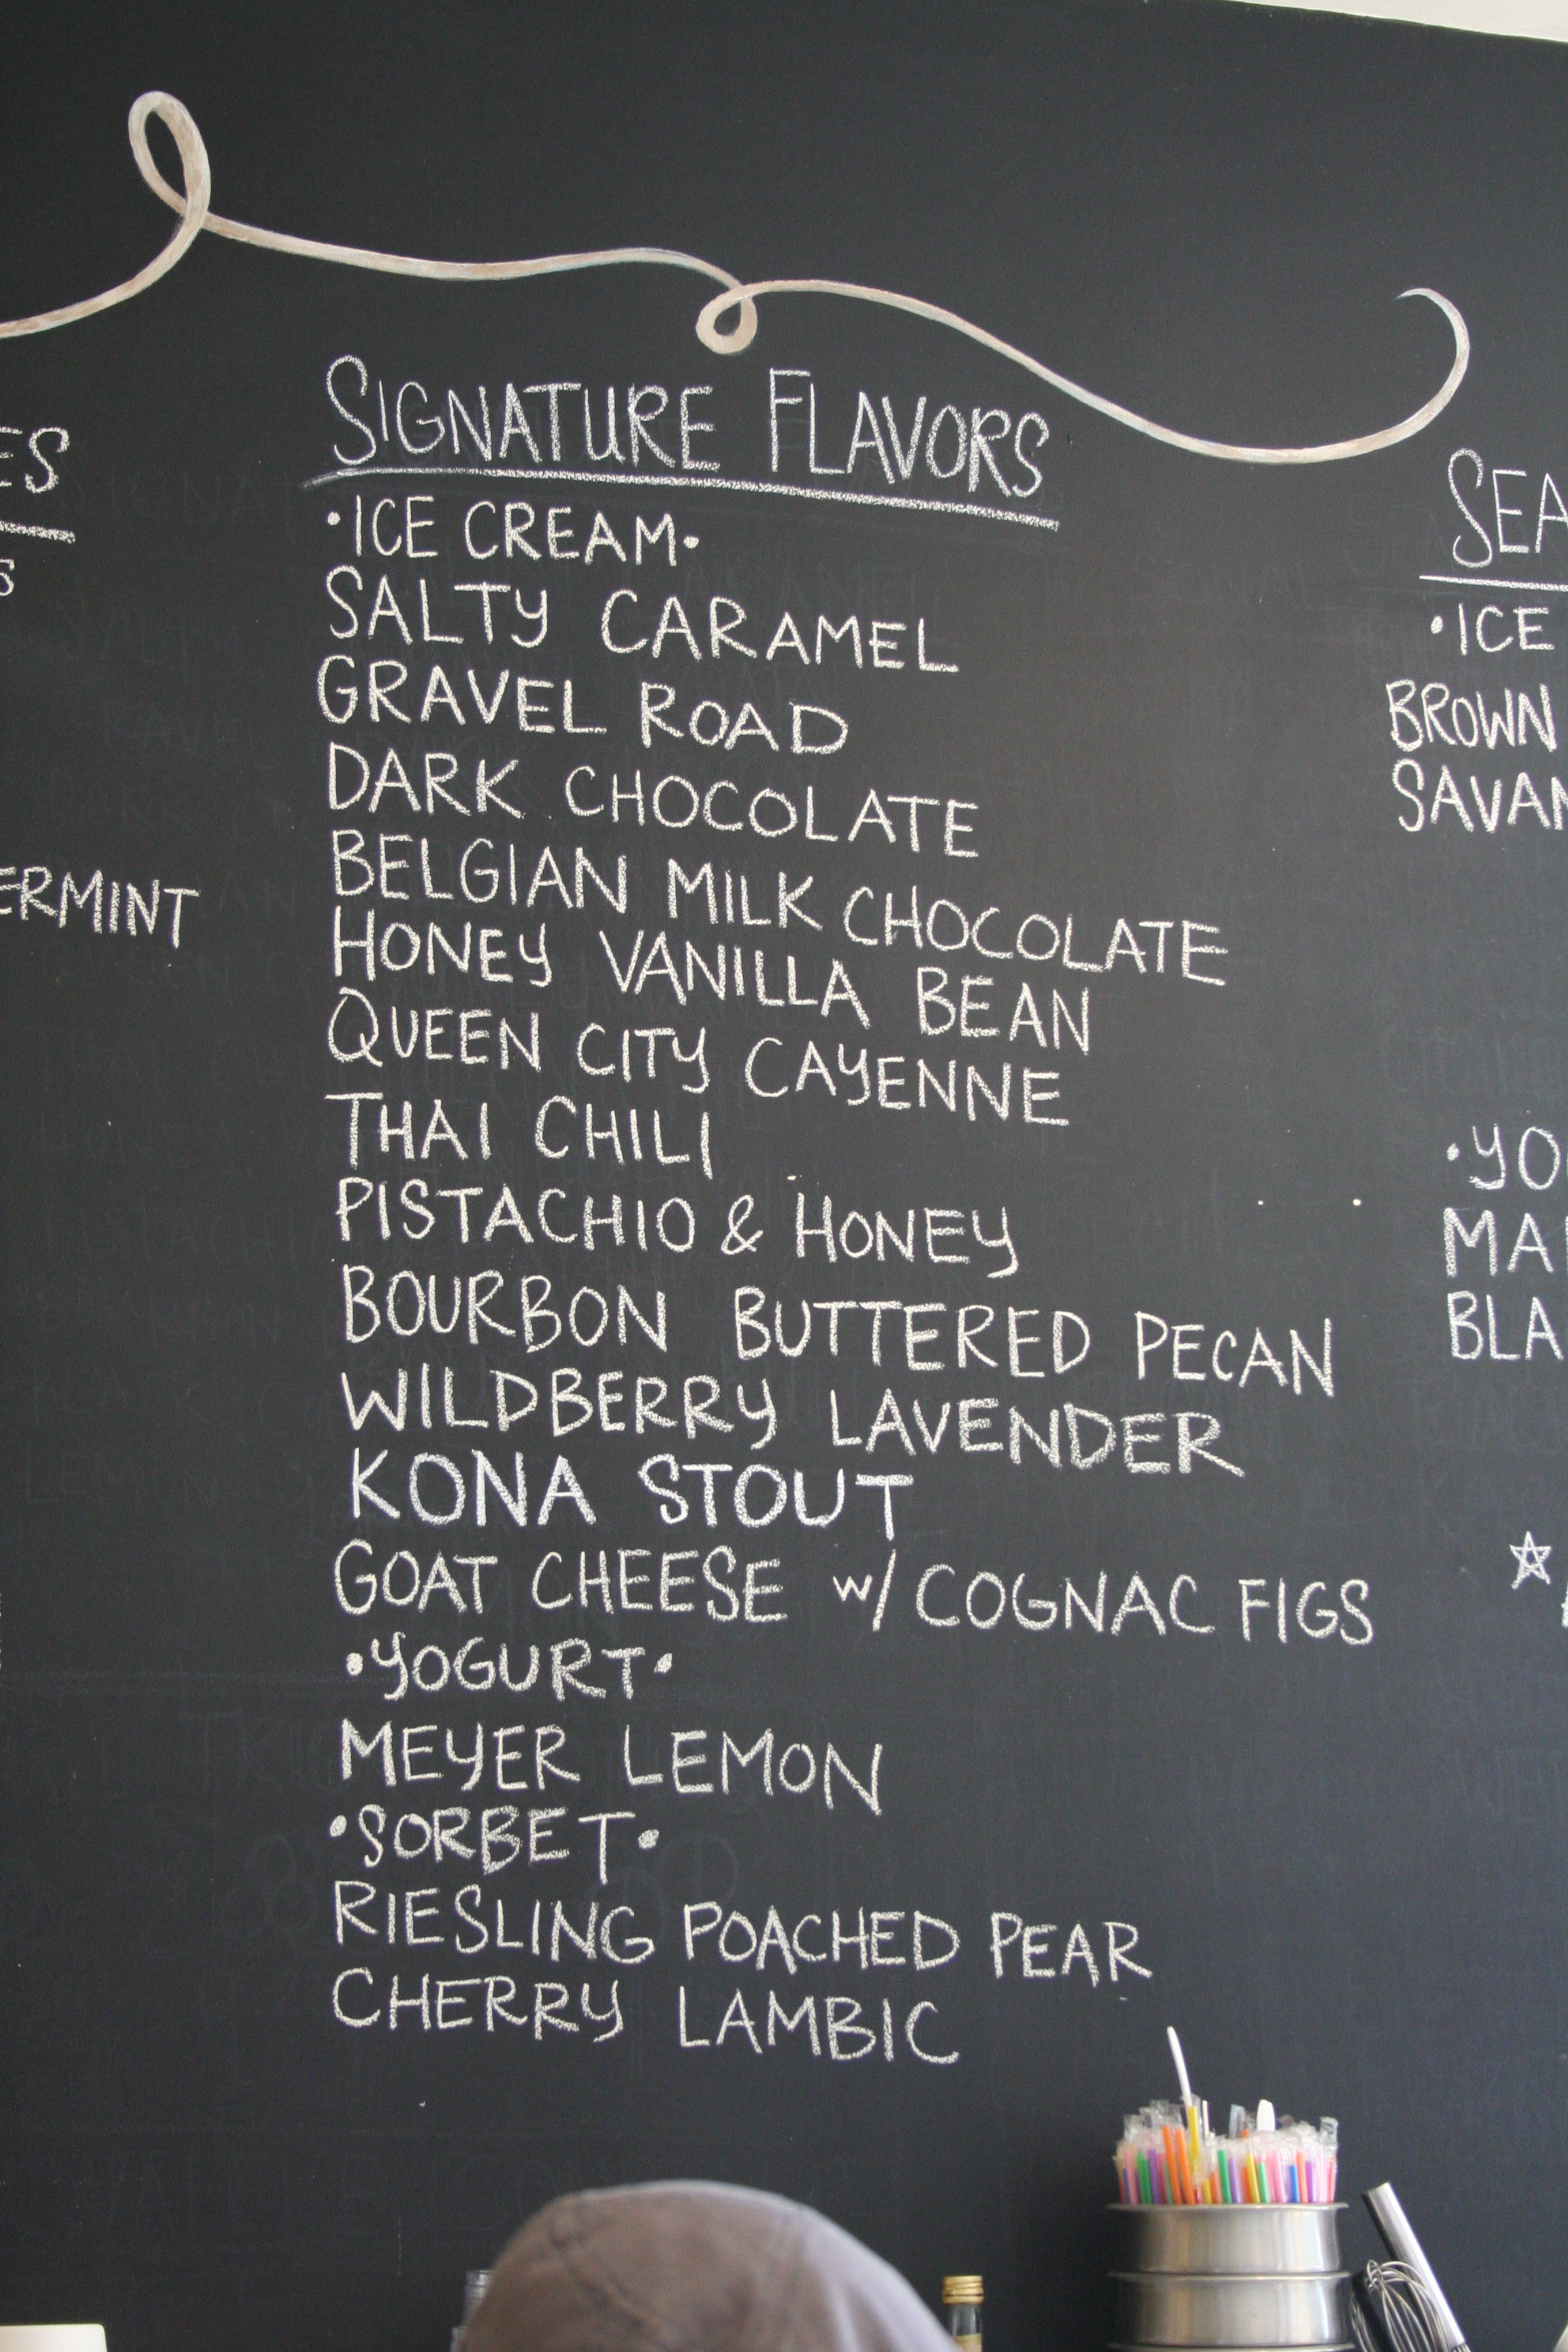 SIGNATURE FLAVORS
•ICE CREAM•
SALTY CARAMEL
GRAVEL ROAD
DARK CHOCOLATE
BELGIAN MILK CHOCOLATE
HONEY VANILLA BEAN
QUEEN CITY CAYENNE
THAI CHILI
PISTACHIO & HONEY
BOURBON BUTTERED PECAN
WILDBERRY LAVENDER
KONA STOUT
GOAT CHEESE w/ COGNAC FIGS
•YOGURT•
MEYER LEMON
•SORBET•
RIESLING POACHED PEAR
CHERRY LAMBIC
•ICE
BROWN